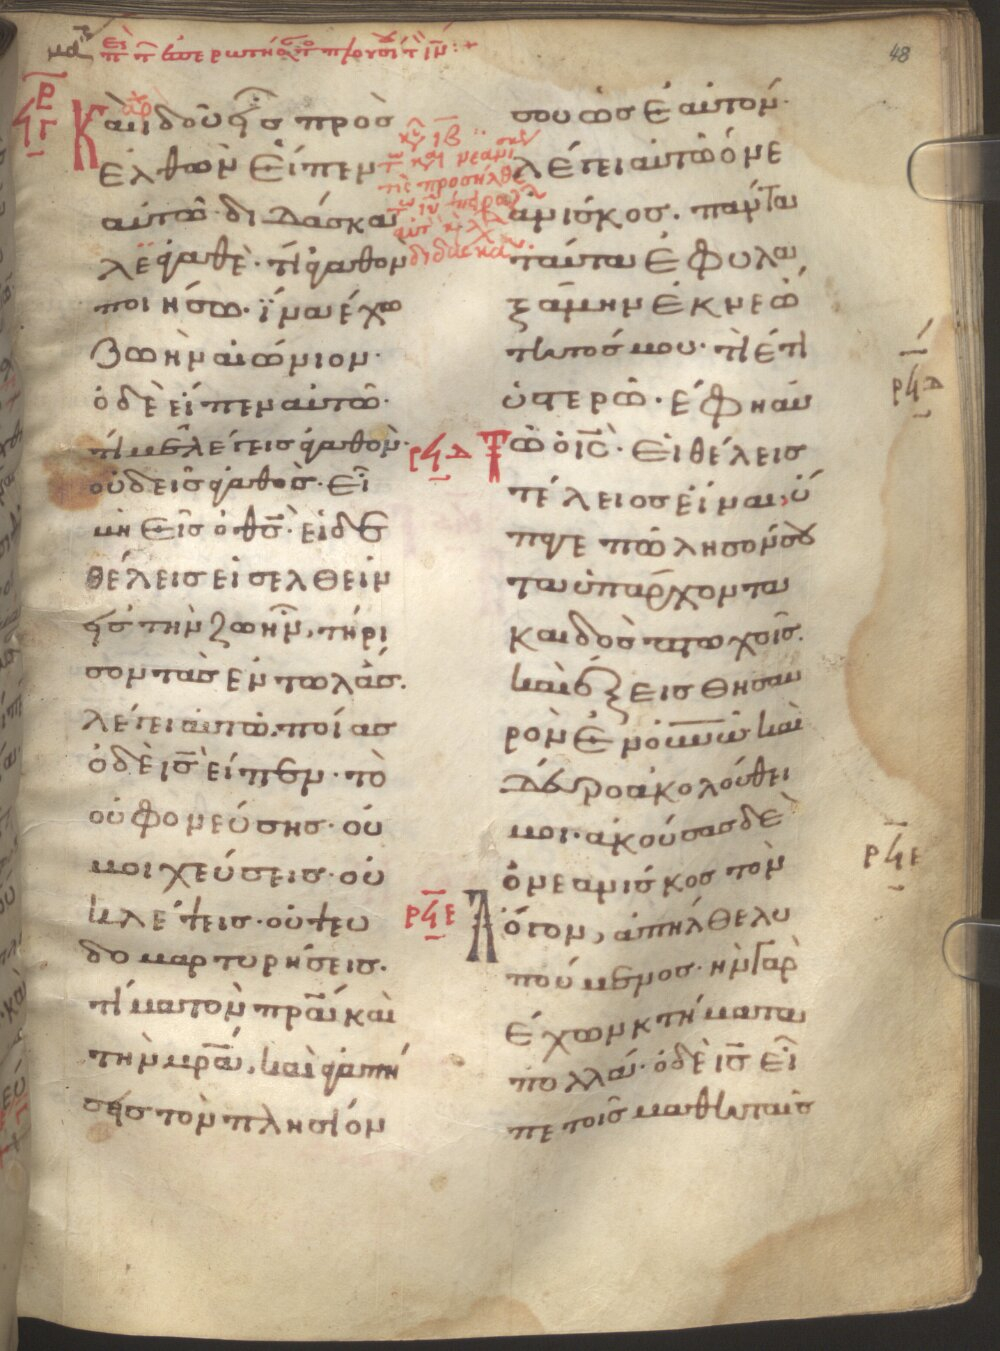 48
Καὶ ἰδοὺ εἷς προσ
ελθὼν εἶπεν
αὐτῶ· διδάσκα
λε ἀγαθὲ· τί ἀγαθὸν
ποιήσω· ἵνα ἔχω
ζωὴν αἰώνιον·
ὁ δὲ εἶπεν αὐτῶ·
τί με λέγεις ἀγαθὸν·
οὐδεὶς ἀγαθὸς· εἰ
μὴ εἷς ὁ θς· εἰ δὲ
θέλεις εἰσελθεῖν
εἰς τὴν ζωὴν, τήρι
σον τὰς ἐντωλάς.
λέγει αὐτῶ· ποίας
ὁ δὲ ις εἶπεν· τὸ
οὐ φονεύσης· οὐ
μοιχεύσεις· οὐ
κλέψεις· οὐ ψευ
δομαρτυρήσεις.
τίμα τὸν πρα καὶ
τὴν μρα, καὶ ἀγαπή
σεις τὸν πλησίον
σου ὡς ἑαυτόν·
λέγει αὐτῶ ὁ νε
ανίσκος. πάντα
ταῦτα ἐφυλα
ξάμην ἐκ νεώ
τητός μου· τί ἔτι
ὑστερῶ· ἔφη αὐ
ρϟδ Τῶ ὁ ις· εἰ θέλεις
τέλειος εἶναι, ὕ
παγε πώλησόν σου
τὰ ὑπάρχοντα
καὶ δὸς πτωχοῖς.
καὶ ἕξεις θησαυ
ρὸν ἐν οὐνω· καὶ
δεῦρο ἀκολούθει
μοι· ἀκούσας δὲ
ὁ νεανίσκος τὸν
ρϟε Λόγον, ἀπῆλθε λυ
πούμενος· ἦν γὰρ
ἔχων κτήματα
πολλά· ὁ δὲ ις εἶ
πε τοῖς μαθηταῖς
ρϟδ
ρϟε